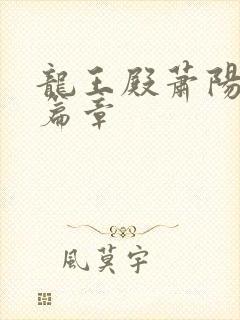 龍王殿蕭陽
篇章
風莫宇